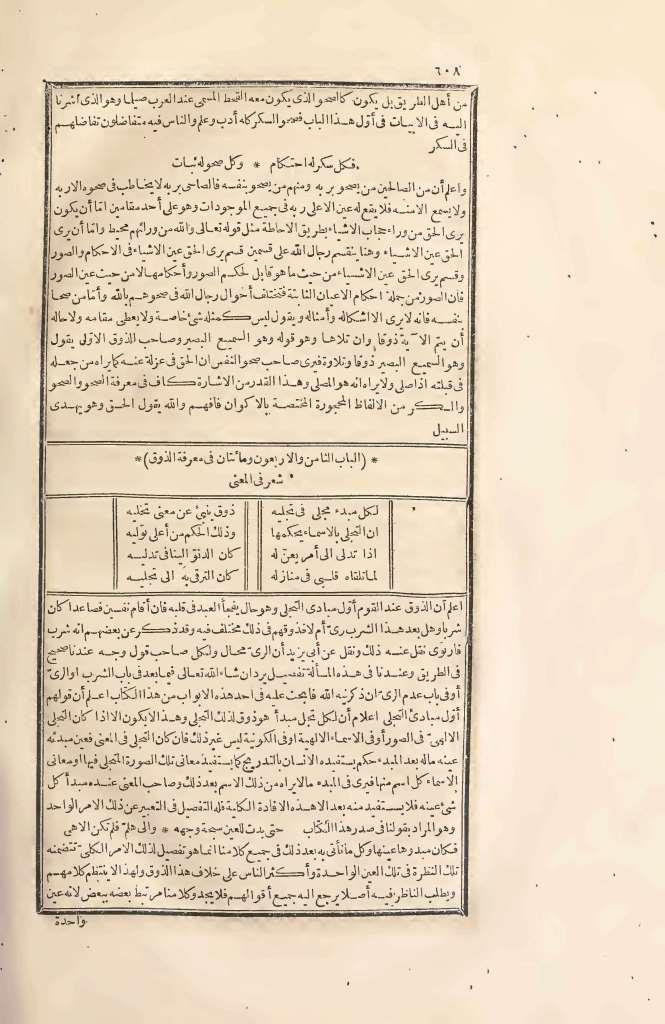 ٦٠٨
من أهل الطريق بل يكون كالصحو الذي يكون معه القحط المسمى عند العرب صيلما وهو الذي أشرنا
اليه فى الابيات فى أول هذا الباب فصحو السكر كله أدب وعلم والناس فيه متفاضلون تفاضلهم
فى السكر
فكل سكر له احتكام * وكل صحو له ثبات
واعلم أن من الصالحين من يصحو بربه ومنهم من يصحو بنفسه فالصاحى بربه لا يخاطب فى صحوه الا ربه
ولا يسمع الا منه فلا يقع له عين الا على ربه فى جميع الموجودات وهو على أحد مقامين اما أن يكون
يرى الحق من وراء حجاب الاشياء بطريق الاحاطة مثل قوله تعالى والله من ورائهم محيط واما أن يرى
الحق عين الاشياء وهنا ينقسم رجال الله على قسمين قسم يرى الحق عين الاشياء فى الاحكام والصور
وقسم يرى الحق عين الاشياء من حيث ما هو قابل لحكم الصور وأحكامها لا من حيث عين الصور
فان الصور من جملة احكام الاعيان الثابتة فتختلف أحوال رجال الله فى صحوهم بالله وأما من صحا
بنفسه فانه لا يرى الا اشكاله وأمثاله ويقول ليس كمثله شئ خاصة ولا يعطى مقامه ولا حاله
أن يتم الآية ذوقا وان تلاها وهو قوله وهو السميع البصير وصاحب الذوق الاول يقول
وهو السميع البصير ذوقا وتلاوة فيرى صاحب صحو النفس ان الحق فى عزلة عنه كما يراه من جعله
فى قبلته اذا صلى ولا يراه انه هو المصلى وهذا القدر من الاشارة كاف فى معرفة الصحو والصحو
والسكر من الالفاظ المحجورة المختصة بالاكوان فافهم والله يقول الحق وهو يهدى
السبيل
* (الباب الثامن والاربعون ومائتان فى معرفة الذوق) *
شعر فى المعنى
لكل مبدء مجلى فى تجليه ذوق ينبئ عن معنى تجليه
ان التجلى بالاسماء يحكمها وذلك الحكم من أعلى توليه
اذا تدلى الى أمر يعن له كان الدنو الينا فى تدليه
لما تلقاه قلبى فى منازله كان الترقى به الى تجليه
اعلم أن الذوق عند القوم أول مبادى التجلى وهو حال يفجأ العبد فى قلبه فان أقام نفسين فصاعدا كان
شربا وهل بعد هذا الشرب رى أم لا فذوقهم فى ذلك مختلف فيه وقد ذكر عن بعضهم انه شرب
فارتوى نقل عنه ذلك ونقل عن أبى يزيد أن الرى محال ولكل صاحب قول وجه عندنا صحيح
فى الطريق وعندنا فى هذه المسألة تفصيل يرد ان شاء الله تعالى فيما بعد فى باب الشرب او الرى
أو فى باب عدم الرى ان ذكرنيه الله فابحث عليه فى احد هذه الابواب من هذا الكتاب اعلم أن قولهم
أول مبادئ التجلى اعلام أن لكل تجل مبدأ هو ذوق لذلك التجلى وهذا لا يكون الا اذا كان التجلى
الالهى فى الصور أو فى الاسماء الالهية او فى الكونية ليس غير ذلك فان كان التجلى فى المعنى فعين مبدئه
عينه ماله بعد المبدء حكم يستفيده الانسان بالتدريج كما يستفيد معانى تلك الصورة المتجلى فيها او معانى
الاسماء كل اسم منها فيرى فى المبدء ما لا يراه من ذلك الاسم بعد ذلك وصاحب المعنى عنده مبدأ كل
شئ عينه فلا يستفيد منه بعد الا هذه الافادة الكلية فله التفصيل فى التعبير عن ذلك الامر الواحد
وهو المراد بقولنا فى صدر هذا الكتاب حتى بدت للعين سبحة وجهه * والى هلم فلم تكن الا هى
فكان مبدؤها عينها وكل ما نأتى به بعد ذلك فى جميع كلامنا انما هو تفصيل لذلك الامر الكلى تتضمنه
تلك النظرة فى تلك العين الواحدة وأكثر الناس على خلاف هذا الذوق ولهذا لا ينتظم كلامهم
ويطلب الناظر فيه أصلا يرجع اليه جميع أقوالهم فلا يجد وكلامنا مرتبط بعضه ببعض لانه عين
واحدة